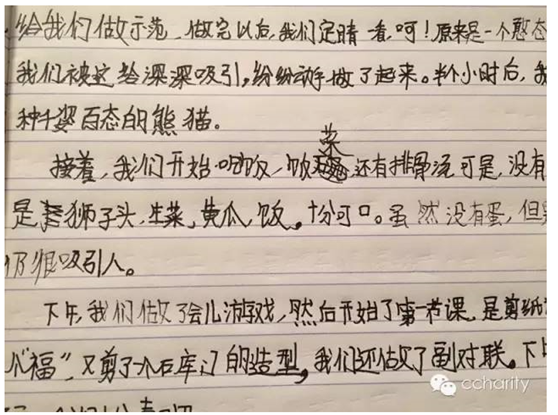 给我们做示范，做完以后，我们定晴一看，呵！原来是一个憨态
我们被这给深深吸引，纷纷动手做了起来。半个小时后，我
种千姿百态的熊猫。
接着，我们开始吃饭，饭菜还有排骨汤可是，没有
是狮子头，生菜，黄瓜，饭。十分可口。虽然没有蛋，但
仍很吸引人。
下午，我们做了会儿游戏，然后开始了第一节课，是剪纸
个“福”，又剪了一个石库门的造型，我们还做了副对联。下
ccharity